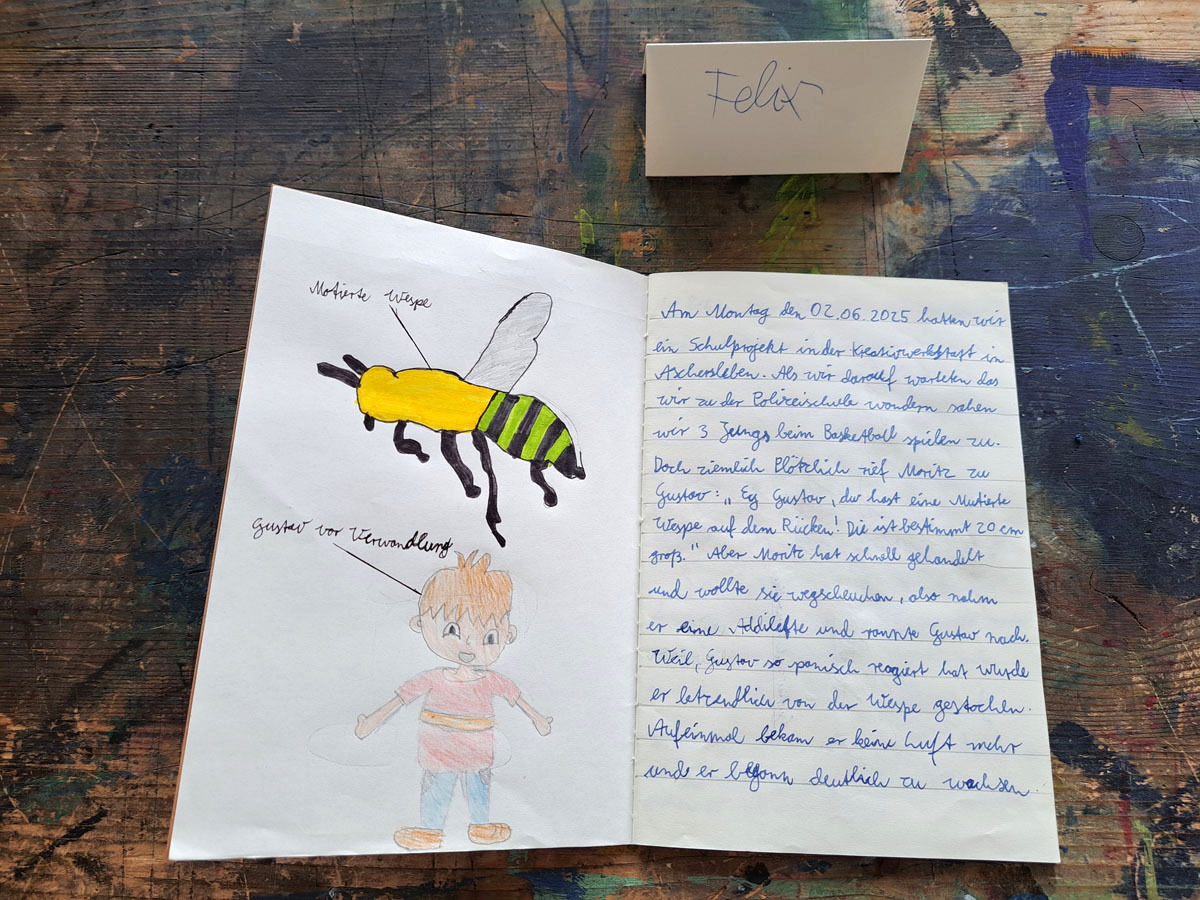 Felix
Motierte Wespe
Gustav vor Verwandlung
Am Montag den 02.06.2025 hatten wir
ein Schulprojekt in der Kreativwerkstatt in
Aschersleben. Als wir darauf warteten das
wir zu der Polizeischule wandern sahen
wir 3 Jungs beim Basketball spielen zu.
Doch ziemlich Plötzlich rief Moritz zu
Gustav: „Ey Gustav, du hast eine Mutierte
Wespe auf dem Rücken! Die ist bestimmt 20 cm
groß." Aber Moritz hat schnell gehandelt
und wollte sie wegscheuchen, also nahm
er eine und rannte Gustav nach.
Weil, Gustav so panisch reagiert hat wurde
er letzendlich von der Wespe gestochen.
Aufeinmal bekam er keine Luft mehr
und er begann deutlich zu wachsen.